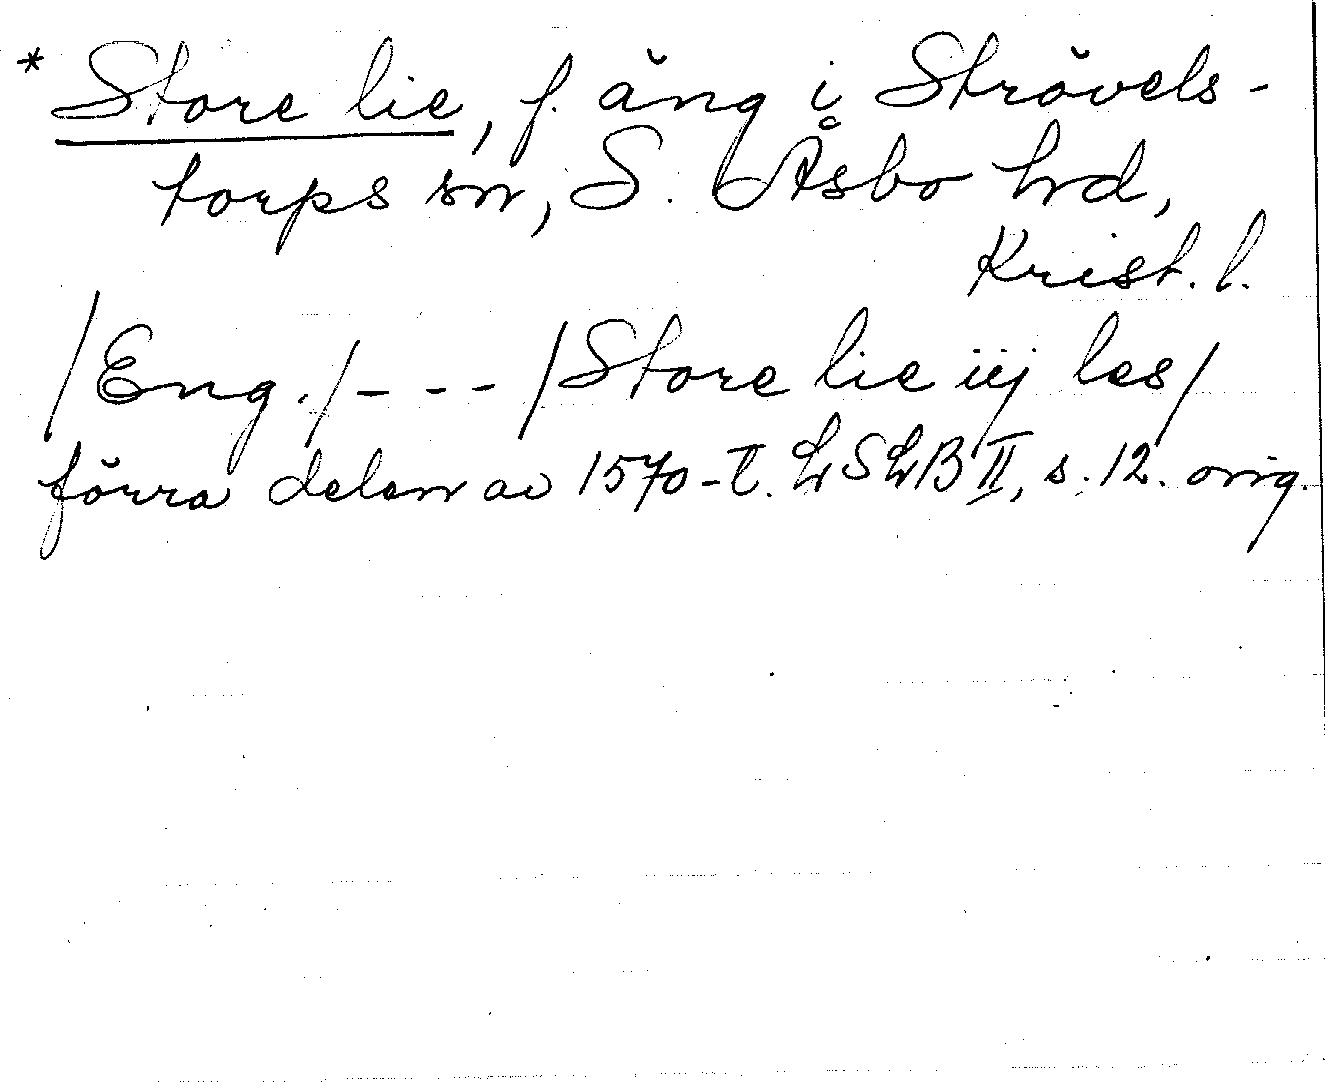 * Store lie, f. äng i Strövels-
torps sn, S. Åsbo hd,
Krist. l.
/Eng./--- /Store lie iij les/
förra delen av 1570-t. LSLB II, s. 12. orig.